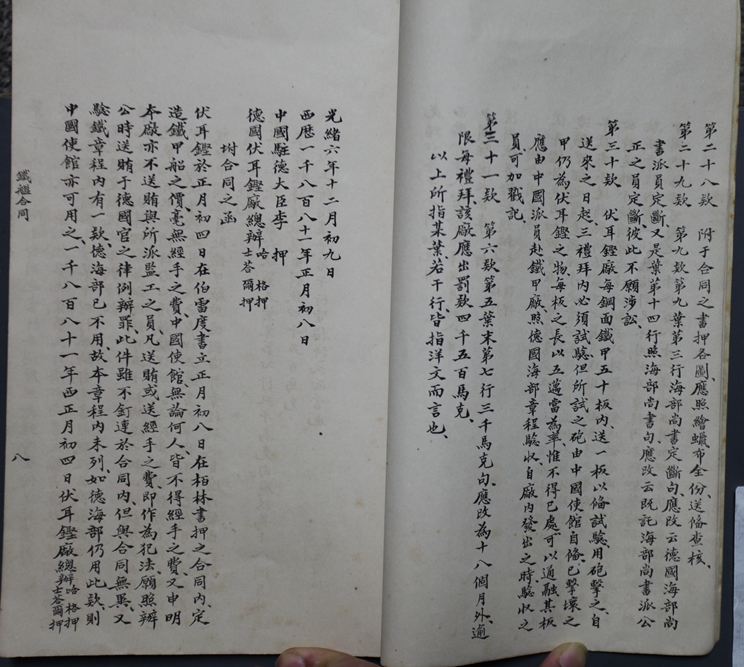 第二十八款　附于合同之書押各圖、應照繪蠟布全份、送偹查核、
第二十九款　第九款第九葉第三行海部尚書定斷句、應改云德國海部尚
書派員定斷、又是葉第十四行照海部尚書句、應改云既託海部尚書派公
正之員定斷、彼此不願涉訟、
第三十款　伏耳鏗廠每鋼面鐵甲五十板內、送一板以偹試驗、用砲擊之、自
送來之日起、三禮拜內必須試驗、但所試之砲由中國使館自偹、已擊壞之
甲仍為伏耳鏗之物、每板之長以五邁當為率、惟不得已處可以通融、其板
應由中國派員赴鐵甲廠照德國海部章程驗收、自廠內發出之時、驗收之
員可加戳記、
第三十一款　第六款第五葉末第七行三千馬克句、應改為十八個月外、逾
限每禮拜該廠應出罰款四千五百馬克、
以上所指某葉若干行皆指洋文而言也、
光緒六年十二月初九日
西歷一千八百八十一年正月初八日
中國駐德大臣李　押
德國伏耳鏗廠總辦哈格押士荅爾押
坿合同之函
伏耳鏗於正月初四日在伯雷度書立正月初八日在栢林書押之合同內、定
造鐵甲船之價、毫無經手之費、中國使館無論何人、皆不得經手之費、又申明
本廠亦不送賄與所派監工之員、凡送賄或送經手之費、即作為犯法、願照辦
公時送賄于德國官之律例辦罪、此件雖不釘連於合同內、但與合同無異、又
驗鐵章程內有一款、德海部已不用、故本章程內未列、如德海部仍用此款、則
中國使館亦可用之、一千八百八十一年西正月初四日伏耳鏗廠總辦哈格押士荅爾押
鐵艦合同
八